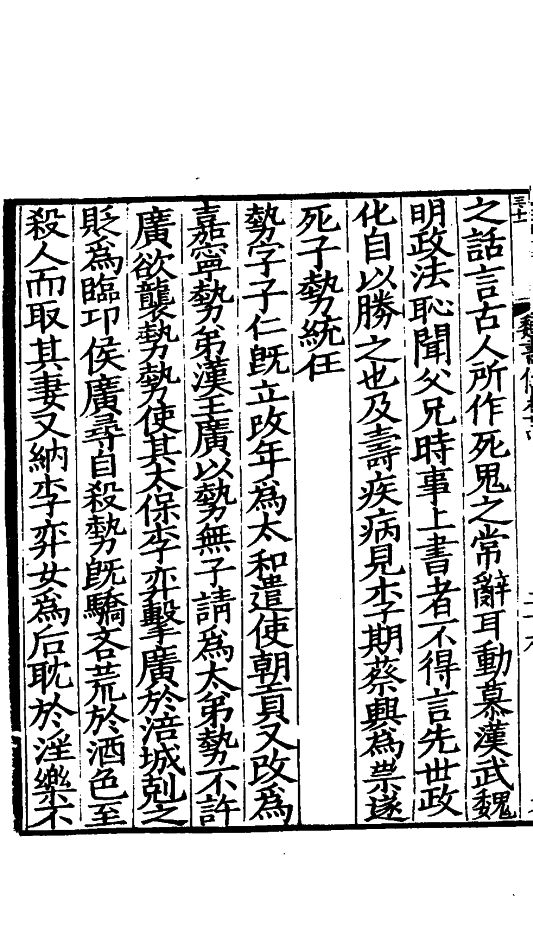 之話言古人所作死鬼之常辭耳動慕漢武魏
明政法恥聞父兄時事上書者不得言先世政
化自以勝之也及壽疾病見李期蔡興為祟遂
死子勢統任
勢字子仁旣立改年為太和遣使朝貢又改為
嘉寧勢弟漢王廣以勢無子請為太弟勢不許
廣欲襲勢勢使其太保李弈擊廣於涪城剋之
貶為臨卭侯廣尋自殺勢旣驕吝荒於酒色至
殺人而取其妻又納李弈女為后耽於淫樂不